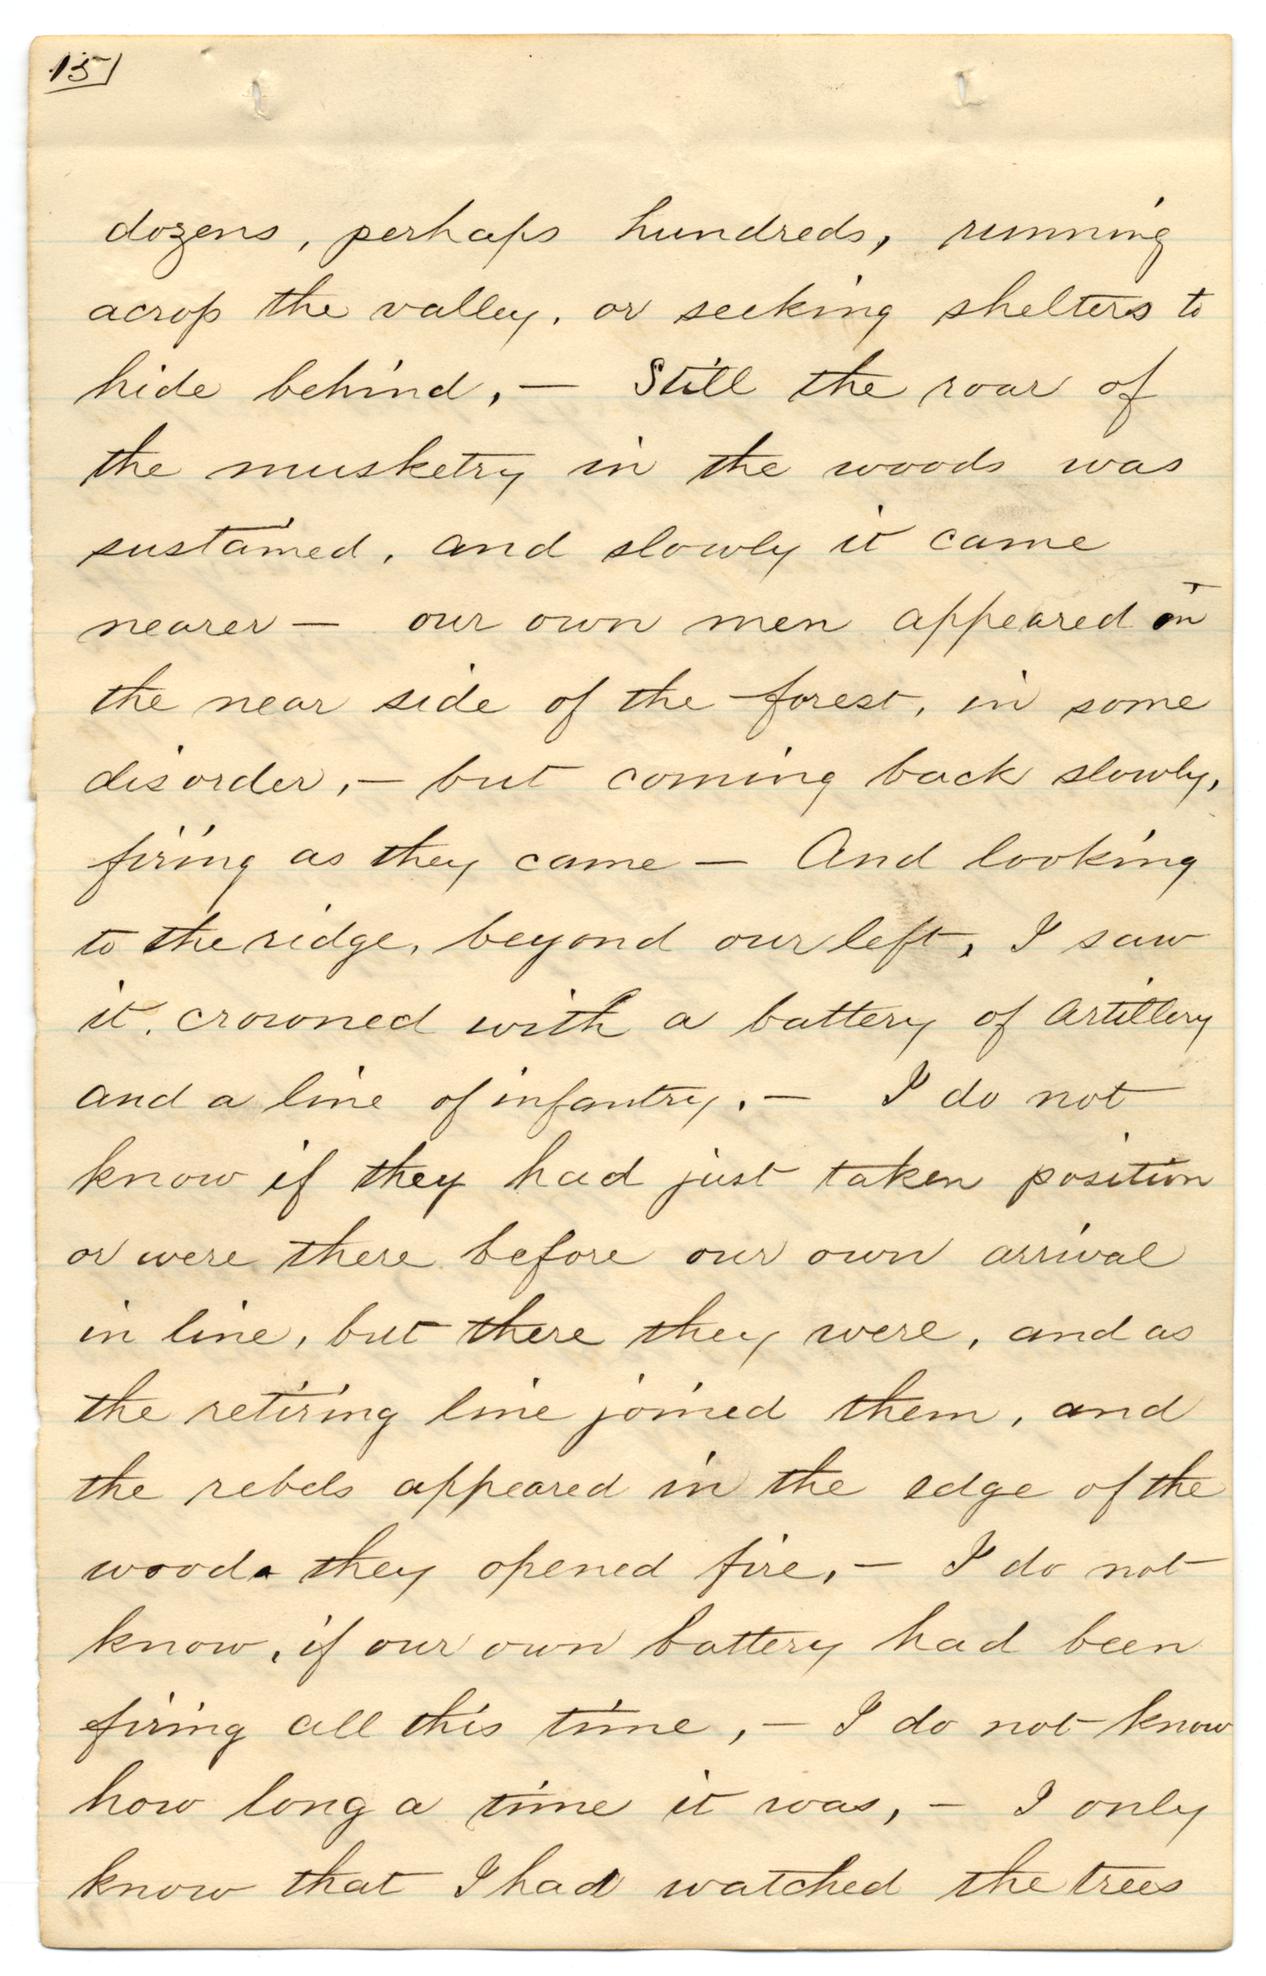 15
dozens, perhaps hundreds, running
across the valley, or seeking shelters to
hide behind, — Still the roar of
the musketry in the woods was
sustained, and slowly it came
nearer — our own men appeared on
the near side of the forest, in some
disorder, — but coming back slowly,
firing as they came — And looking
to the ridge, beyond our left, I saw
it, crowned with a battery of artillery
and a line of infantry. — I do not
know if they had just taken position
or were there before our own arrival
in line, but there they were, and as
the retiring line joined them, and
the rebels appeared in the edge of the
woods they opened fire, — I do not
know, if our own battery had been
firing all this time, — I do not know
how long a time it was, — I only
know that I had watched the trees